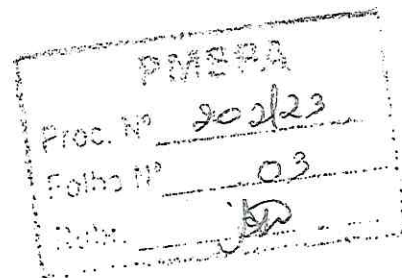 PMSPA
Proc. Nº 202/23
Folha Nº 03